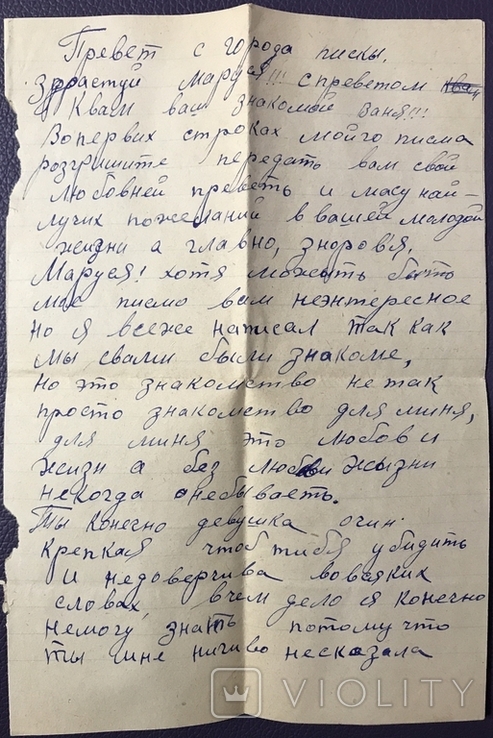 Превет с города писки.
Здрастуй Маруся!!! с преветом
я квам ваш знакомой Ваня!!!
Вопервих строках мойго писма
розгришите передать вам свой
любовней преветь и масу най-
лучих пожеланий в вашей молодой
жизни а главно, зноровя,
Маруся! хотя можеть быть
мое писмо вам неэнтересное
но я всеже написал так как
мы свами были знакоме,
но это знакомство не так
просто знакомство для миня,
для миня это любов и
жизн а без любви жызни
некогда небываеть.
Ты конечно девушка очин
крепкая чтоб тибя убидить
и недоверчива вовсяких
словах, вчем дело я конечно
немогу знать потому что
ты мне ничиво несказала
VIOLITY